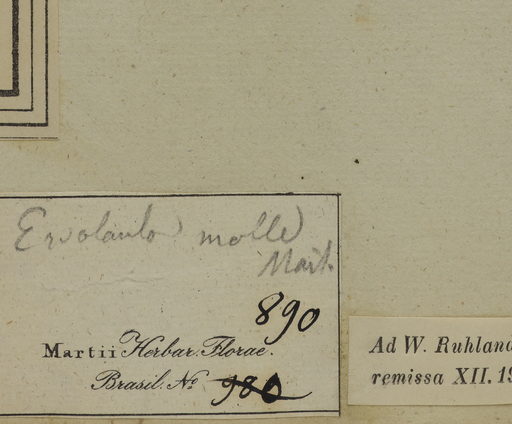 Eriolaulo molle
Mart.
890
Martii Herbar. Florae.
Brasil. No 980
Ad W. Ruhland
remissa XII. 19